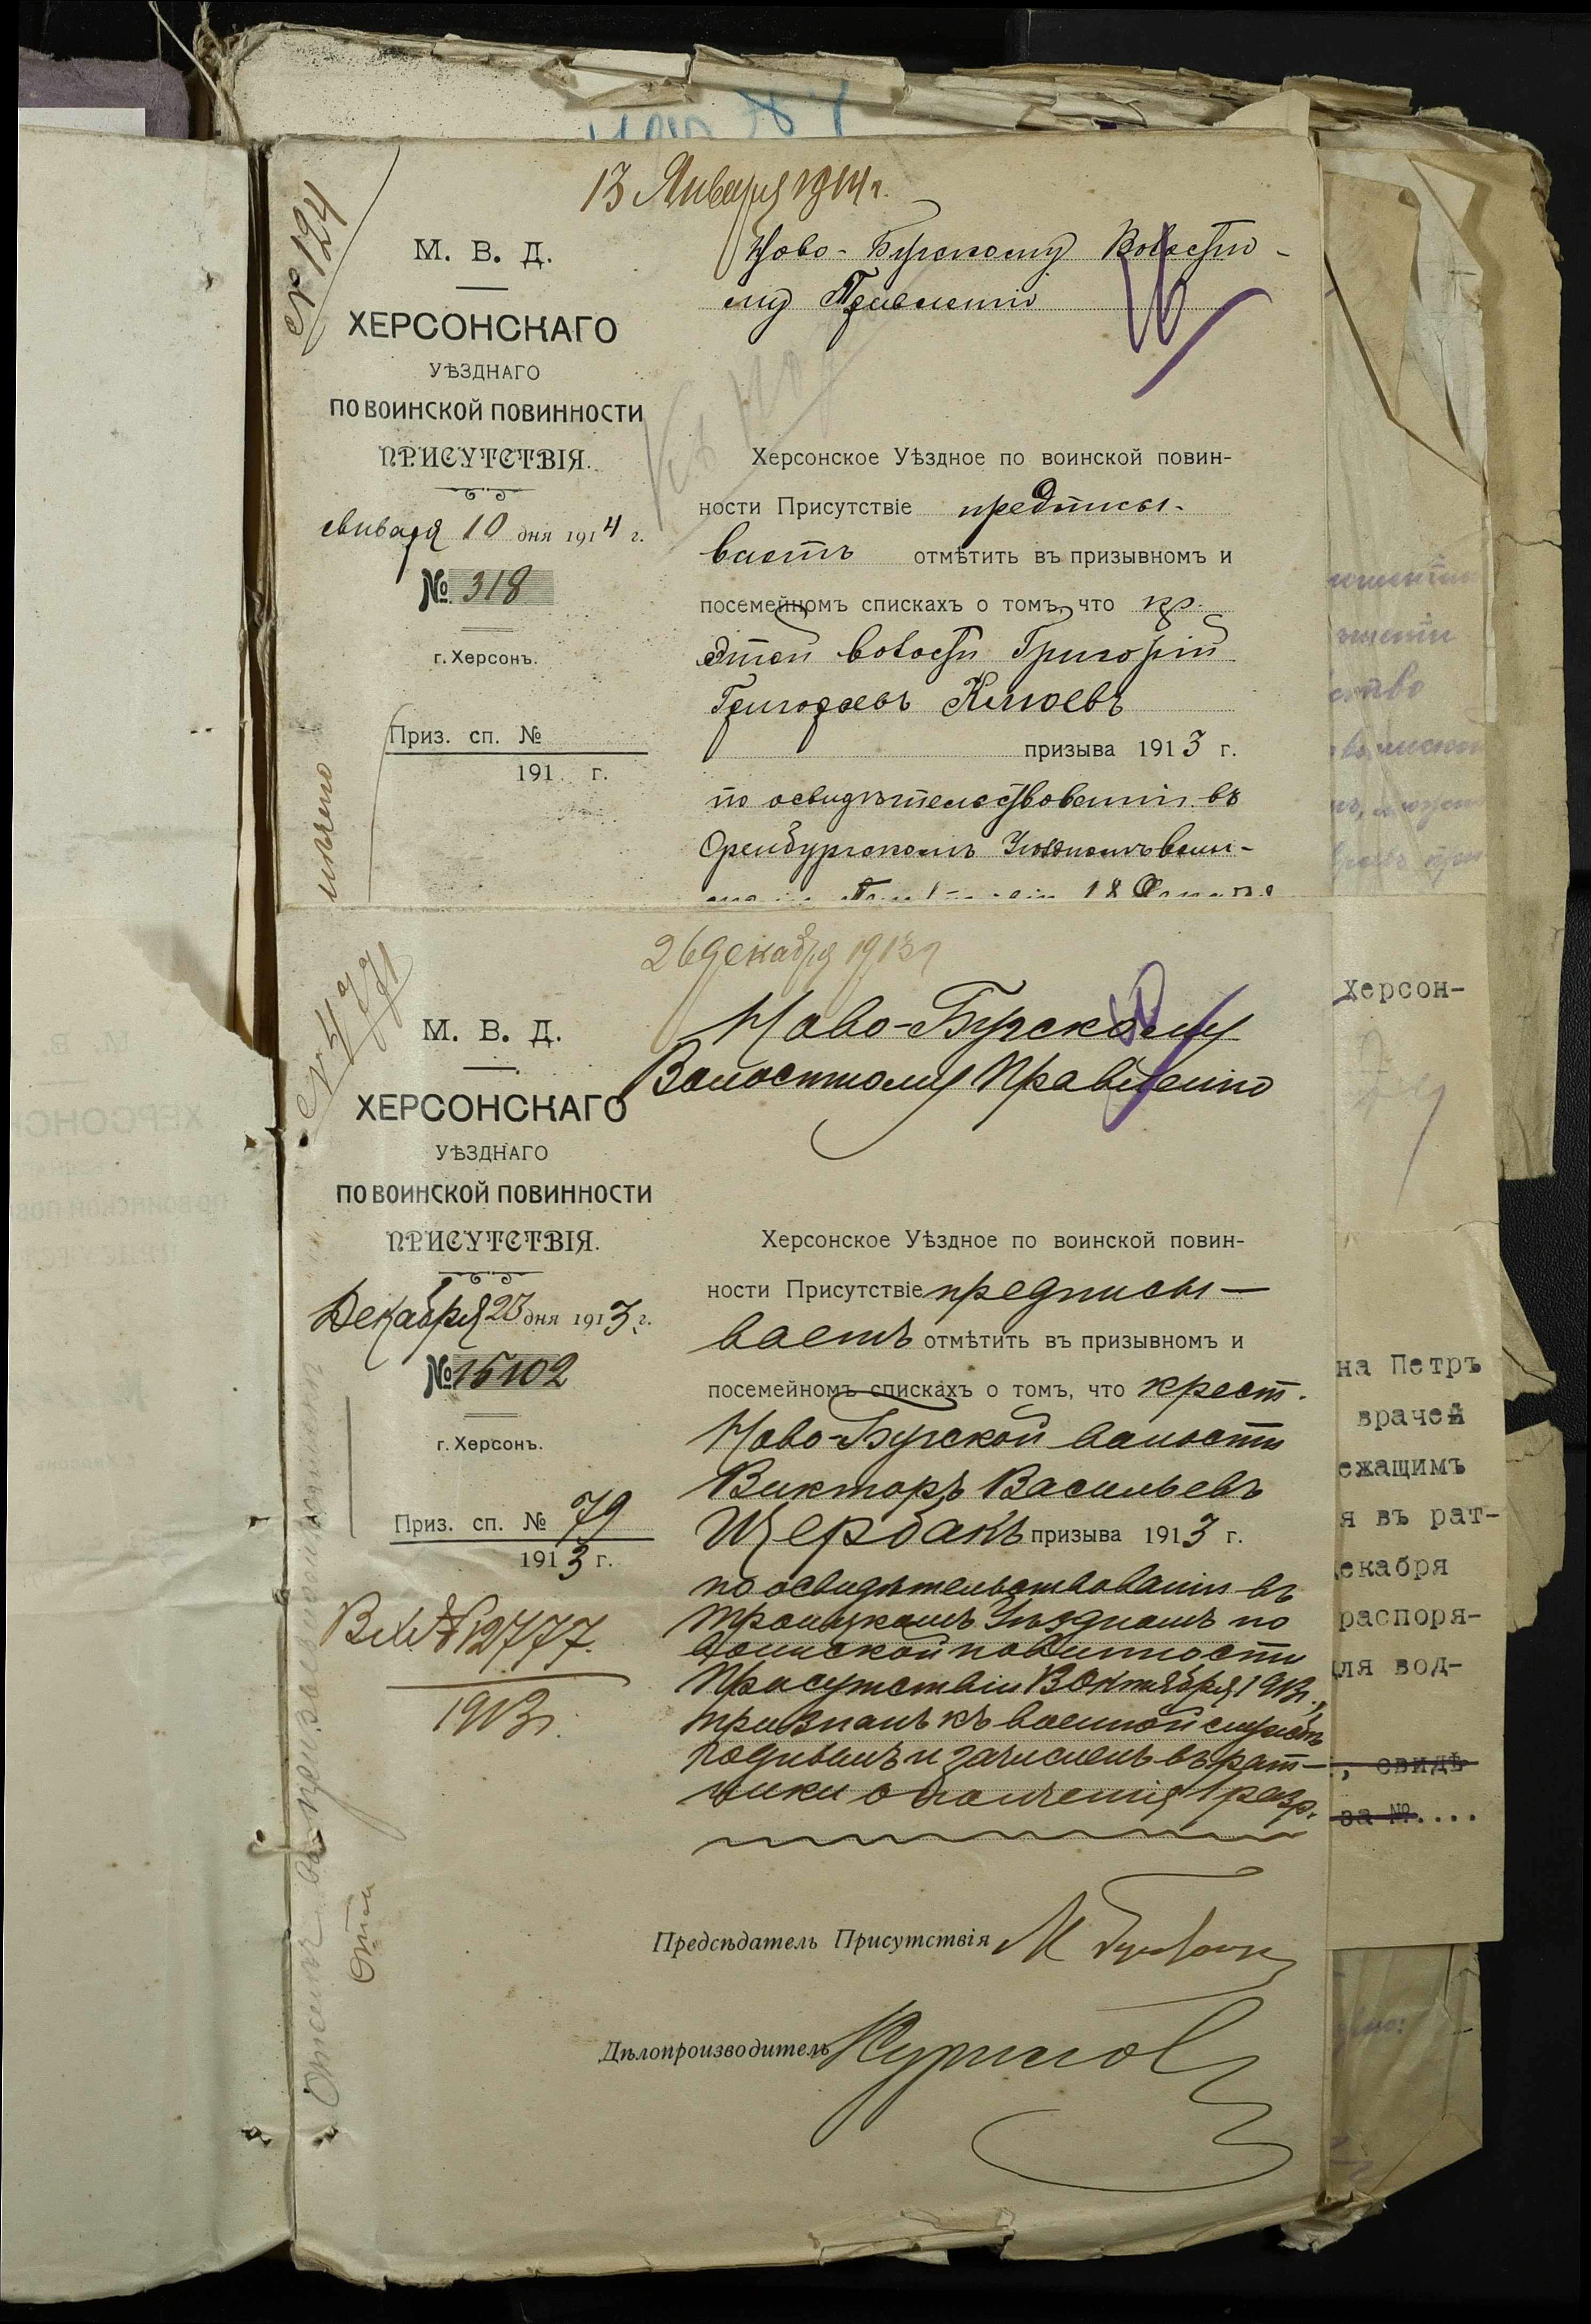 13 Января 1914 г.
№ 124
М. В. Д.
ХЕРСОНСКАГО
УѢЗДНАГО
ПО ВОИНСКОЙ ПОВИННОСТИ
ПРИСУТСТВІЯ.
Января 10 дня 1914 г.
№ 318
г. Херсонъ.
Приз. сп. №
191 г.
Ново-Бугскому Волостно-
му Правленію
Херсонское Уѣздное по воинской повин-
ности Присутствіе предписы-
ваетъ отмѣтить въ призывномъ и
посемейномъ спискахъ о томъ, что кр.
этой волости Григорій
Григорьевъ Клюевъ
призыва 1913 г.
по освидѣтельствованіи въ
Оренбургскомъ Уѣздномъ воин-
18
26 декабря 1913 г
М. В. Д.
ХЕРСОНСКАГО
УѢЗДНАГО
ПО ВОИНСКОЙ ПОВИННОСТИ
ПРИСУТСТВІЯ.
Декабря 23 дня 1913 г.
№ 15102
г. Херсонъ.
Приз. сп. № 79
1913 г.
Вх. № 12777.
1913 г.
Ново-Бугскому
Волостному Правленію
Херсонское Уѣздное по воинской повин-
ности Присутствіе предписы-
ваетъ отмѣтить въ призывномъ и
посемейномъ спискахъ о томъ, что крест.
Ново-Бугской волости
Викторъ Васильевъ
Щербакъ призыва 1913 г.
по освидѣтельствованіи въ
Троицкомъ Уѣздномъ по
воинской повинности
Присутствіи Октября 1913 г.,
признанъ къ военной службѣ
годнымъ и зачисленъ въ рат-
ники ополченія 1 разр.
Предсѣдатель Присутствія
Дѣлопроизводитель
Херсон-
на Петръ
врачей
ежащимъ
я въ рат-
екабря
распоря-
ля вод-
, свидѣ
за №....